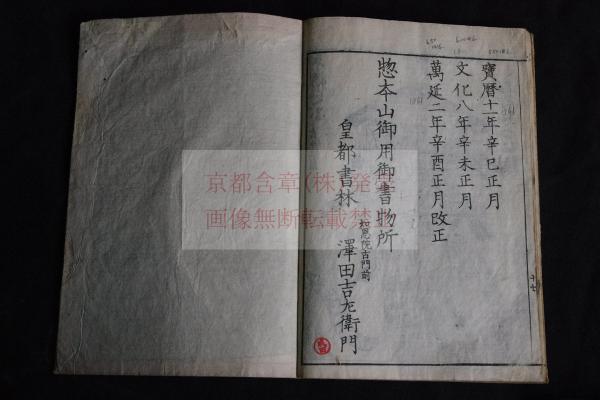 寶暦十一年辛巳正月
文化八年辛未正月
萬延二年辛酉正月改正
惣本山御用御書物所
知恩院古門前
皇都書林 澤田吉左衛門
十七
京都含章(株)発行
画像無断転載禁